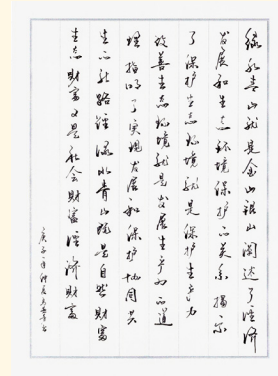 绿水青山就是金山银山阐述了经济
发展和生态环境保护的关系揭示
了保护生态环境就是保护生产力
改善生态环境就是发展生产力的道
理指明了实现发展和保护协同共
生的新路径绿水青山既是自然财富
生态财富又是社会财富经济财富
庚子年